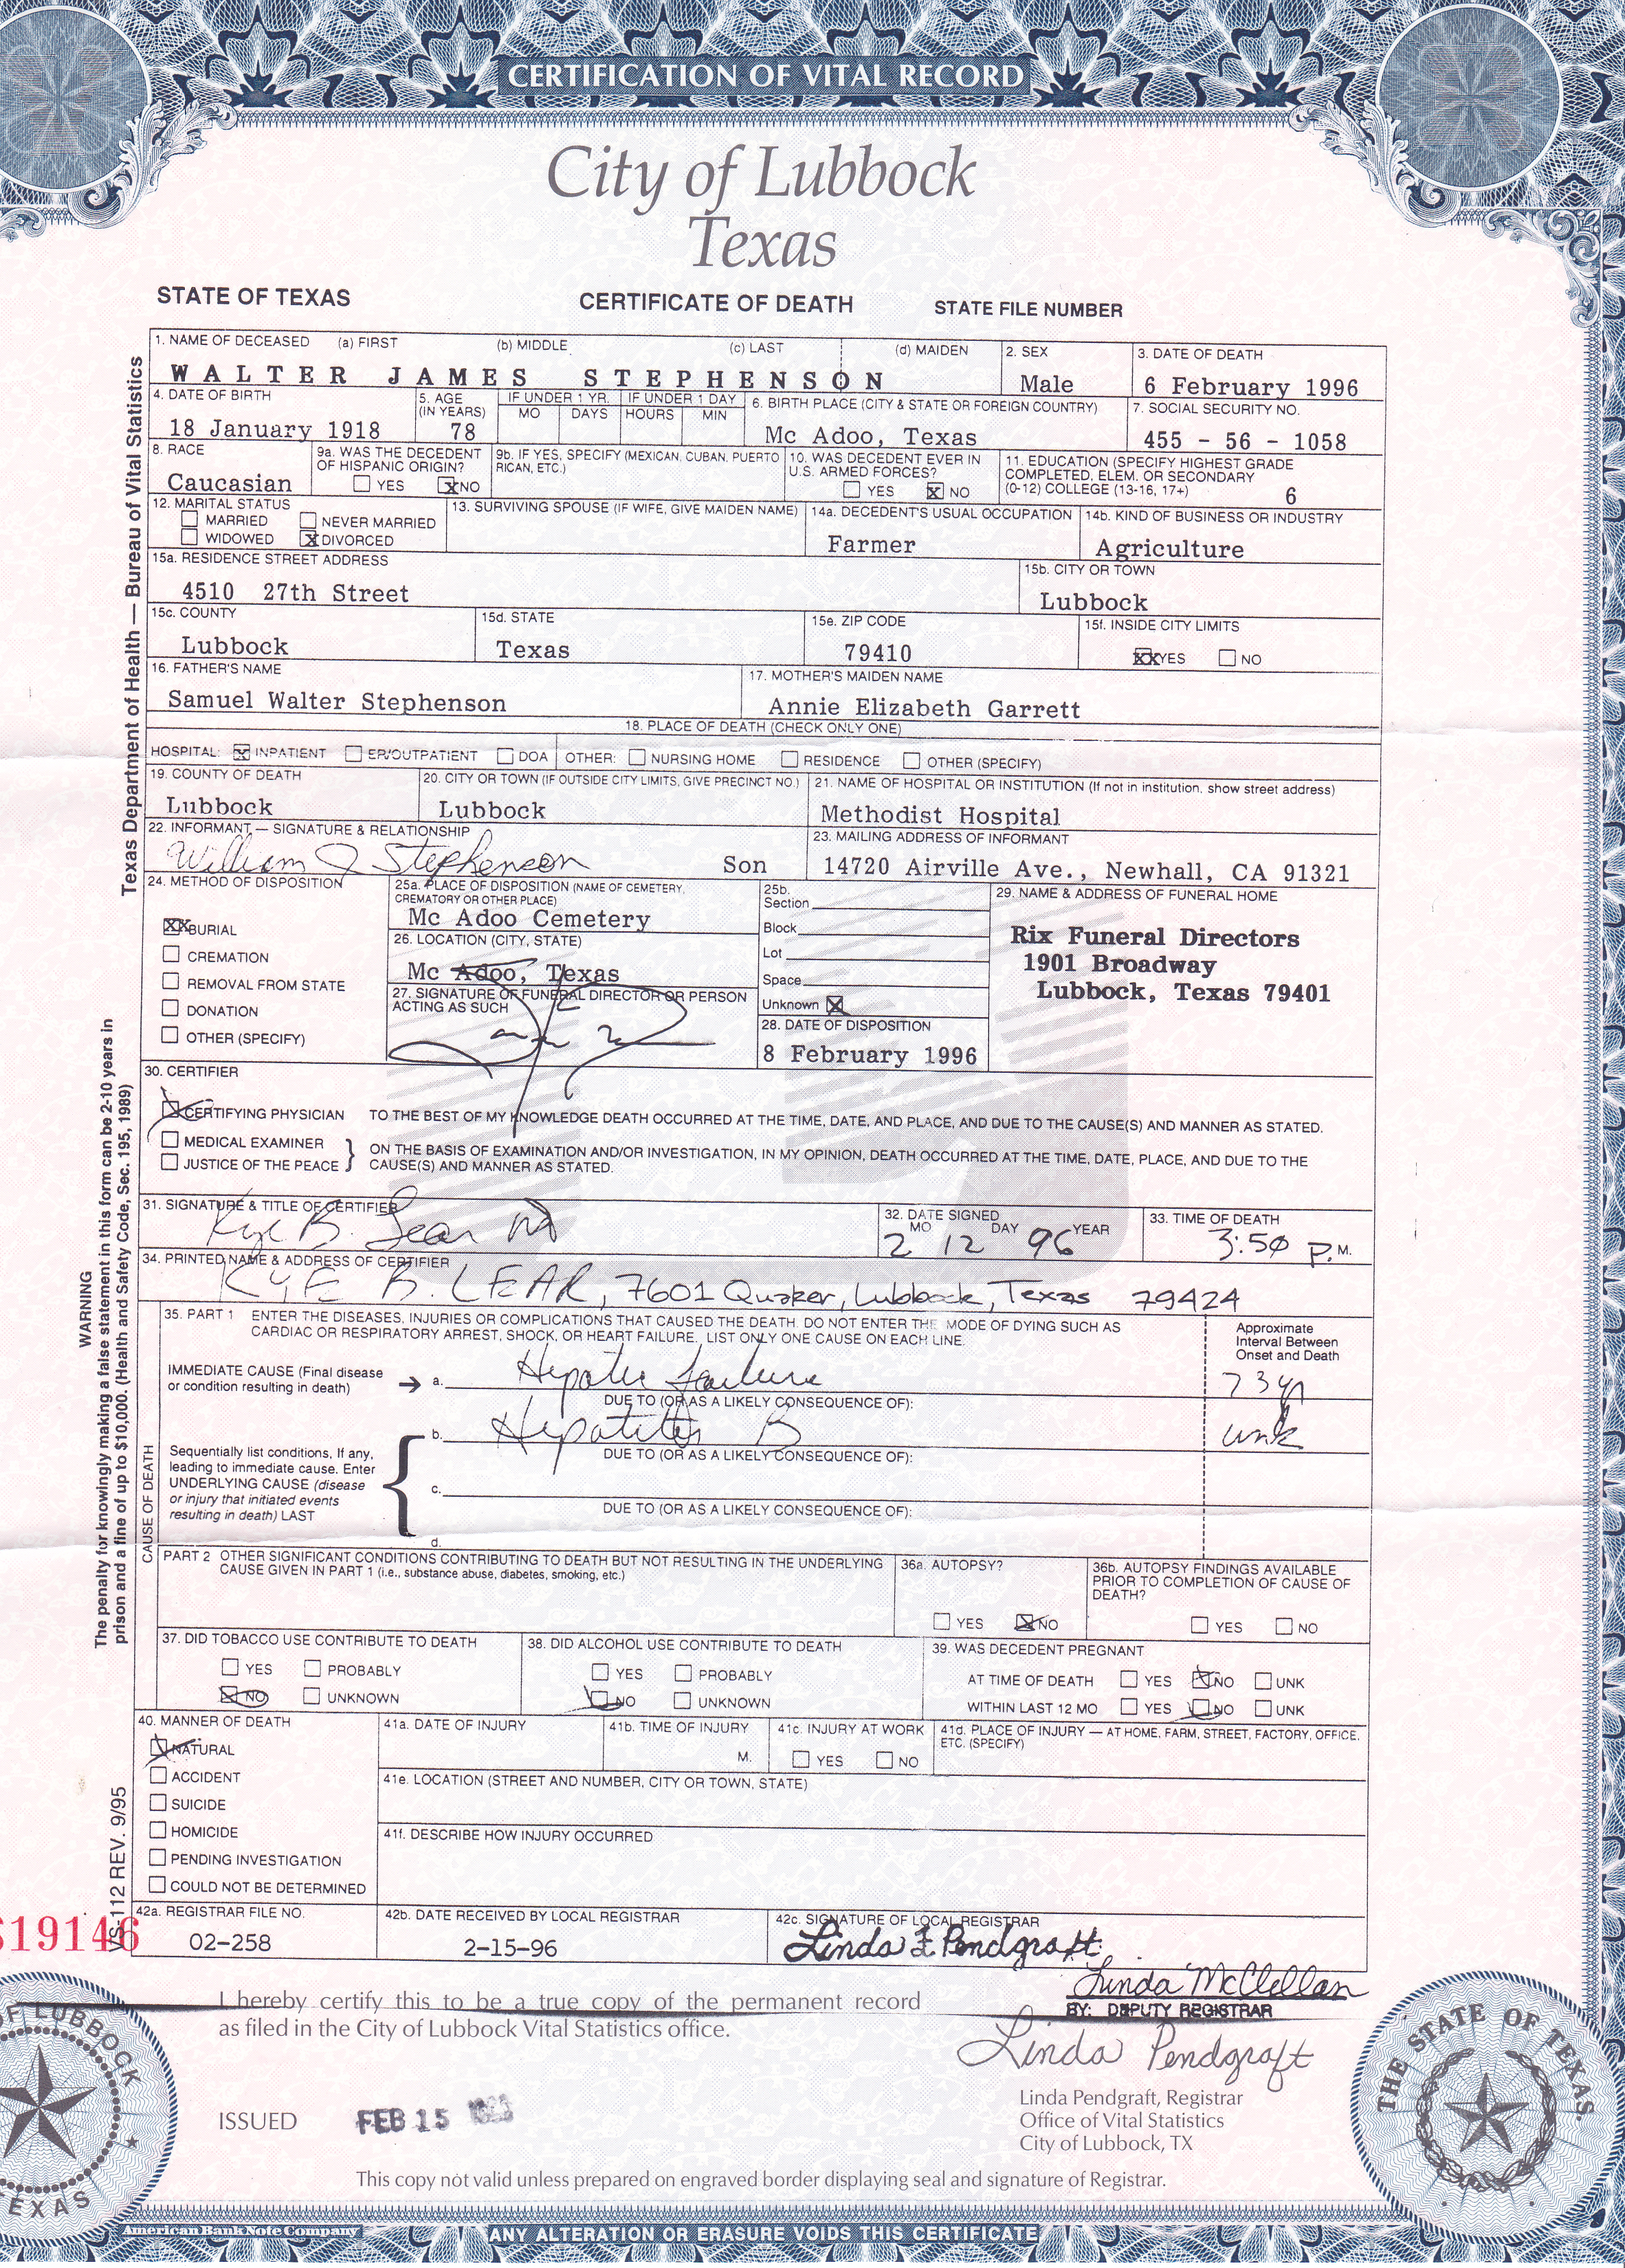 CERTIFICATION OF VITAL RECORD
City of Lubbock
Texas
STATE OF TEXAS CERTIFICATE OF DEATH STATE FILE NUMBER
1. NAME OF DECEASED (a) FIRST (b) MIDDLE (c) LAST (d) MAIDEN
WALTER JAMES STEPHENSON
2. SEX
Male
3. DATE OF DEATH
6 February 1996
4. DATE OF BIRTH
18 January 1918
5. AGE (IN YEARS)
78
IF UNDER 1 YR. IF UNDER 1 DAY
MO DAYS HOURS MIN
6. BIRTH PLACE (CITY & STATE OR FOREIGN COUNTRY)
Mc Adoo, Texas
7. SOCIAL SECURITY NO.
455 - 56 - 1058
8. RACE
Caucasian
9a. WAS THE DECEDENT
OF HISPANIC ORIGIN?
YES X NO
9b. IF YES, SPECIFY (MEXICAN, CUBAN, PUERTO
RICAN, ETC.)
10. WAS DECEDENT EVER IN
U.S. ARMED FORCES?
YES X NO
11. EDUCATION (SPECIFY HIGHEST GRADE
COMPLETED, ELEM. OR SECONDARY
(0-12) COLLEGE (13-16, 17+) 6
12. MARITAL STATUS
MARRIED NEVER MARRIED
WIDOWED X DIVORCED
13. SURVIVING SPOUSE (IF WIFE, GIVE MAIDEN NAME)
14a. DECEDENT'S USUAL OCCUPATION
Farmer
14b. KIND OF BUSINESS OR INDUSTRY
Agriculture
15a. RESIDENCE STREET ADDRESS
4510 27th Street
15b. CITY OR TOWN
Lubbock
15c. COUNTY
Lubbock
15d. STATE
Texas
15e. ZIP CODE
79410
15f. INSIDE CITY LIMITS
XX YES NO
16. FATHER'S NAME
Samuel Walter Stephenson
17. MOTHER'S MAIDEN NAME
Annie Elizabeth Garrett
18. PLACE OF DEATH (CHECK ONLY ONE)
HOSPITAL: X INPATIENT ER/OUTPATIENT DOA OTHER: NURSING HOME RESIDENCE OTHER (SPECIFY)
19. COUNTY OF DEATH
Lubbock
20. CITY OR TOWN (IF OUTSIDE CITY LIMITS, GIVE PRECINCT NO.)
Lubbock
21. NAME OF HOSPITAL OR INSTITUTION (If not in institution, show street address)
Methodist Hospital
22. INFORMANT — SIGNATURE & RELATIONSHIP
William J Stephenson Son
23. MAILING ADDRESS OF INFORMANT
14720 Airville Ave., Newhall, CA 91321
24. METHOD OF DISPOSITION
XX BURIAL
CREMATION
REMOVAL FROM STATE
DONATION
OTHER (SPECIFY)
25a. PLACE OF DISPOSITION (NAME OF CEMETERY,
CREMATORY OR OTHER PLACE)
Mc Adoo Cemetery
26. LOCATION (CITY, STATE)
Mc Adoo, Texas
27. SIGNATURE OF FUNERAL DIRECTOR OR PERSON
ACTING AS SUCH
25b.
Section
Block
Lot
Space
Unknown X
28. DATE OF DISPOSITION
8 February 1996
29. NAME & ADDRESS OF FUNERAL HOME
Rix Funeral Directors
1901 Broadway
Lubbock, Texas 79401
30. CERTIFIER
CERTIFYING PHYSICIAN TO THE BEST OF MY KNOWLEDGE DEATH OCCURRED AT THE TIME, DATE, AND PLACE, AND DUE TO THE CAUSE(S) AND MANNER AS STATED.
MEDICAL EXAMINER
JUSTICE OF THE PEACE
ON THE BASIS OF EXAMINATION AND/OR INVESTIGATION, IN MY OPINION, DEATH OCCURRED AT THE TIME, DATE, PLACE, AND DUE TO THE
CAUSE(S) AND MANNER AS STATED.
31. SIGNATURE & TITLE OF CERTIFIER
Kye B. Lear MD
32. DATE SIGNED
MO DAY YEAR
2 12 96
33. TIME OF DEATH
3:50 P.M.
34. PRINTED NAME & ADDRESS OF CERTIFIER
KYE B. LEAR, 7601 Quaker, Lubbock, Texas 79424
CAUSE OF DEATH
35. PART 1 ENTER THE DISEASES, INJURIES OR COMPLICATIONS THAT CAUSED THE DEATH. DO NOT ENTER THE MODE OF DYING SUCH AS
CARDIAC OR RESPIRATORY ARREST, SHOCK, OR HEART FAILURE. LIST ONLY ONE CAUSE ON EACH LINE.
Approximate
Interval Between
Onset and Death
IMMEDIATE CAUSE (Final disease
or condition resulting in death) → a. Hepatic failure
DUE TO (OR AS A LIKELY CONSEQUENCE OF):
b. Hepatitis B unk
DUE TO (OR AS A LIKELY CONSEQUENCE OF):
Sequentially list conditions, If any,
leading to immediate cause. Enter
UNDERLYING CAUSE (disease
or injury that initiated events
resulting in death) LAST
c.
DUE TO (OR AS A LIKELY CONSEQUENCE OF):
d.
PART 2 OTHER SIGNIFICANT CONDITIONS CONTRIBUTING TO DEATH BUT NOT RESULTING IN THE UNDERLYING
CAUSE GIVEN IN PART 1 (i.e., substance abuse, diabetes, smoking, etc.)
36a. AUTOPSY?
YES NO
36b. AUTOPSY FINDINGS AVAILABLE
PRIOR TO COMPLETION OF CAUSE OF
DEATH?
YES NO
37. DID TOBACCO USE CONTRIBUTE TO DEATH
YES PROBABLY
NO UNKNOWN
38. DID ALCOHOL USE CONTRIBUTE TO DEATH
YES PROBABLY
NO UNKNOWN
39. WAS DECEDENT PREGNANT
AT TIME OF DEATH YES NO UNK
WITHIN LAST 12 MO YES NO UNK
40. MANNER OF DEATH
NATURAL
ACCIDENT
SUICIDE
HOMICIDE
PENDING INVESTIGATION
COULD NOT BE DETERMINED
41a. DATE OF INJURY
41b. TIME OF INJURY
M.
41c. INJURY AT WORK
YES NO
41d. PLACE OF INJURY — AT HOME, FARM, STREET, FACTORY, OFFICE,
ETC. (SPECIFY)
41e. LOCATION (STREET AND NUMBER, CITY OR TOWN, STATE)
41f. DESCRIBE HOW INJURY OCCURRED
42a. REGISTRAR FILE NO.
02-258
42b. DATE RECEIVED BY LOCAL REGISTRAR
2-15-96
42c. SIGNATURE OF LOCAL REGISTRAR
Linda F Pendgraft
Linda McClellan
BY: DEPUTY REGISTRAR
Texas Department of Health — Bureau of Vital Statistics
WARNING
The penalty for knowingly making a false statement in this form can be 2-10 years in
prison and a fine of up to $10,000. (Health and Safety Code, Sec. 195, 1989)
VS-112 REV. 9/95
19146
I hereby certify this to be a true copy of the permanent record
as filed in the City of Lubbock Vital Statistics office.
Linda Pendgraft
Linda Pendgraft, Registrar
Office of Vital Statistics
City of Lubbock, TX
ISSUED FEB 15
This copy not valid unless prepared on engraved border displaying seal and signature of Registrar.
OF LUBBOCK
TEXAS
THE STATE OF TEXAS
American Bank Note Company
ANY ALTERATION OR ERASURE VOIDS THIS CERTIFICATE